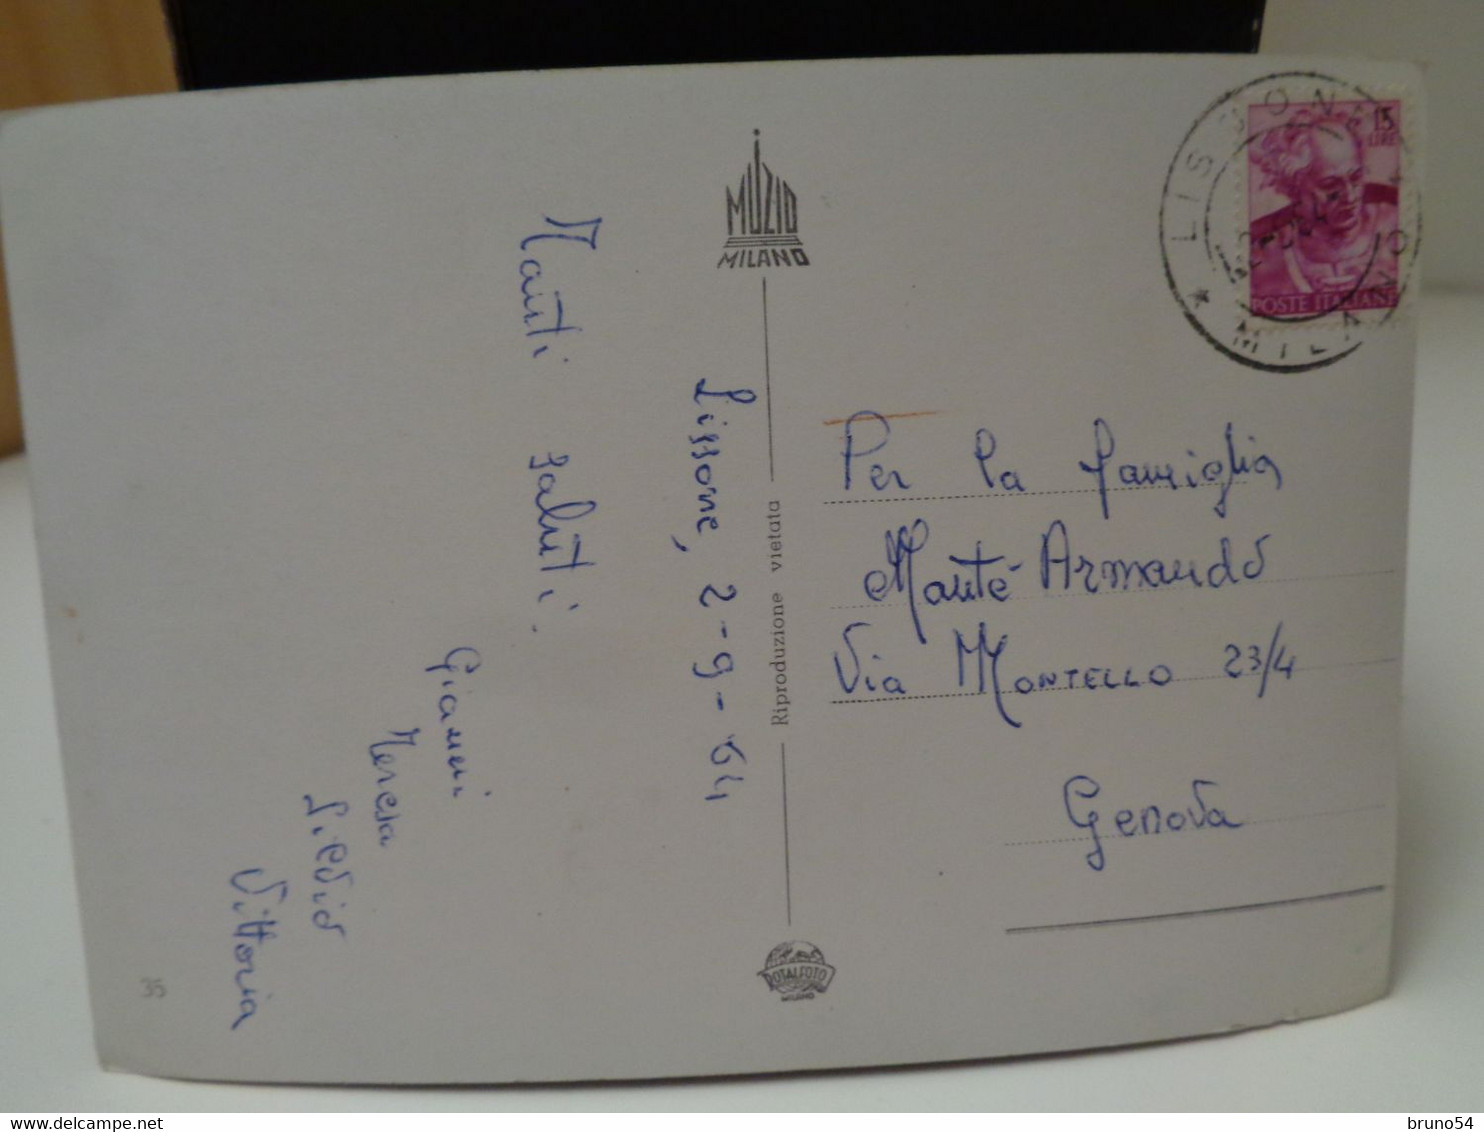 MUZIO
MILANO
Lissone, 2-9-64
Tanti saluti.
Gianni
Teresa
Livio
Vittoria
35
Riproduzione vietata
ROTALFOTO
MILANO
LISSONE
* MILANO
15
LIRE
POSTE ITALIANE
Per la famiglia
Mantè Armando
Via MONTELLO 23/4
Genova
bruno54